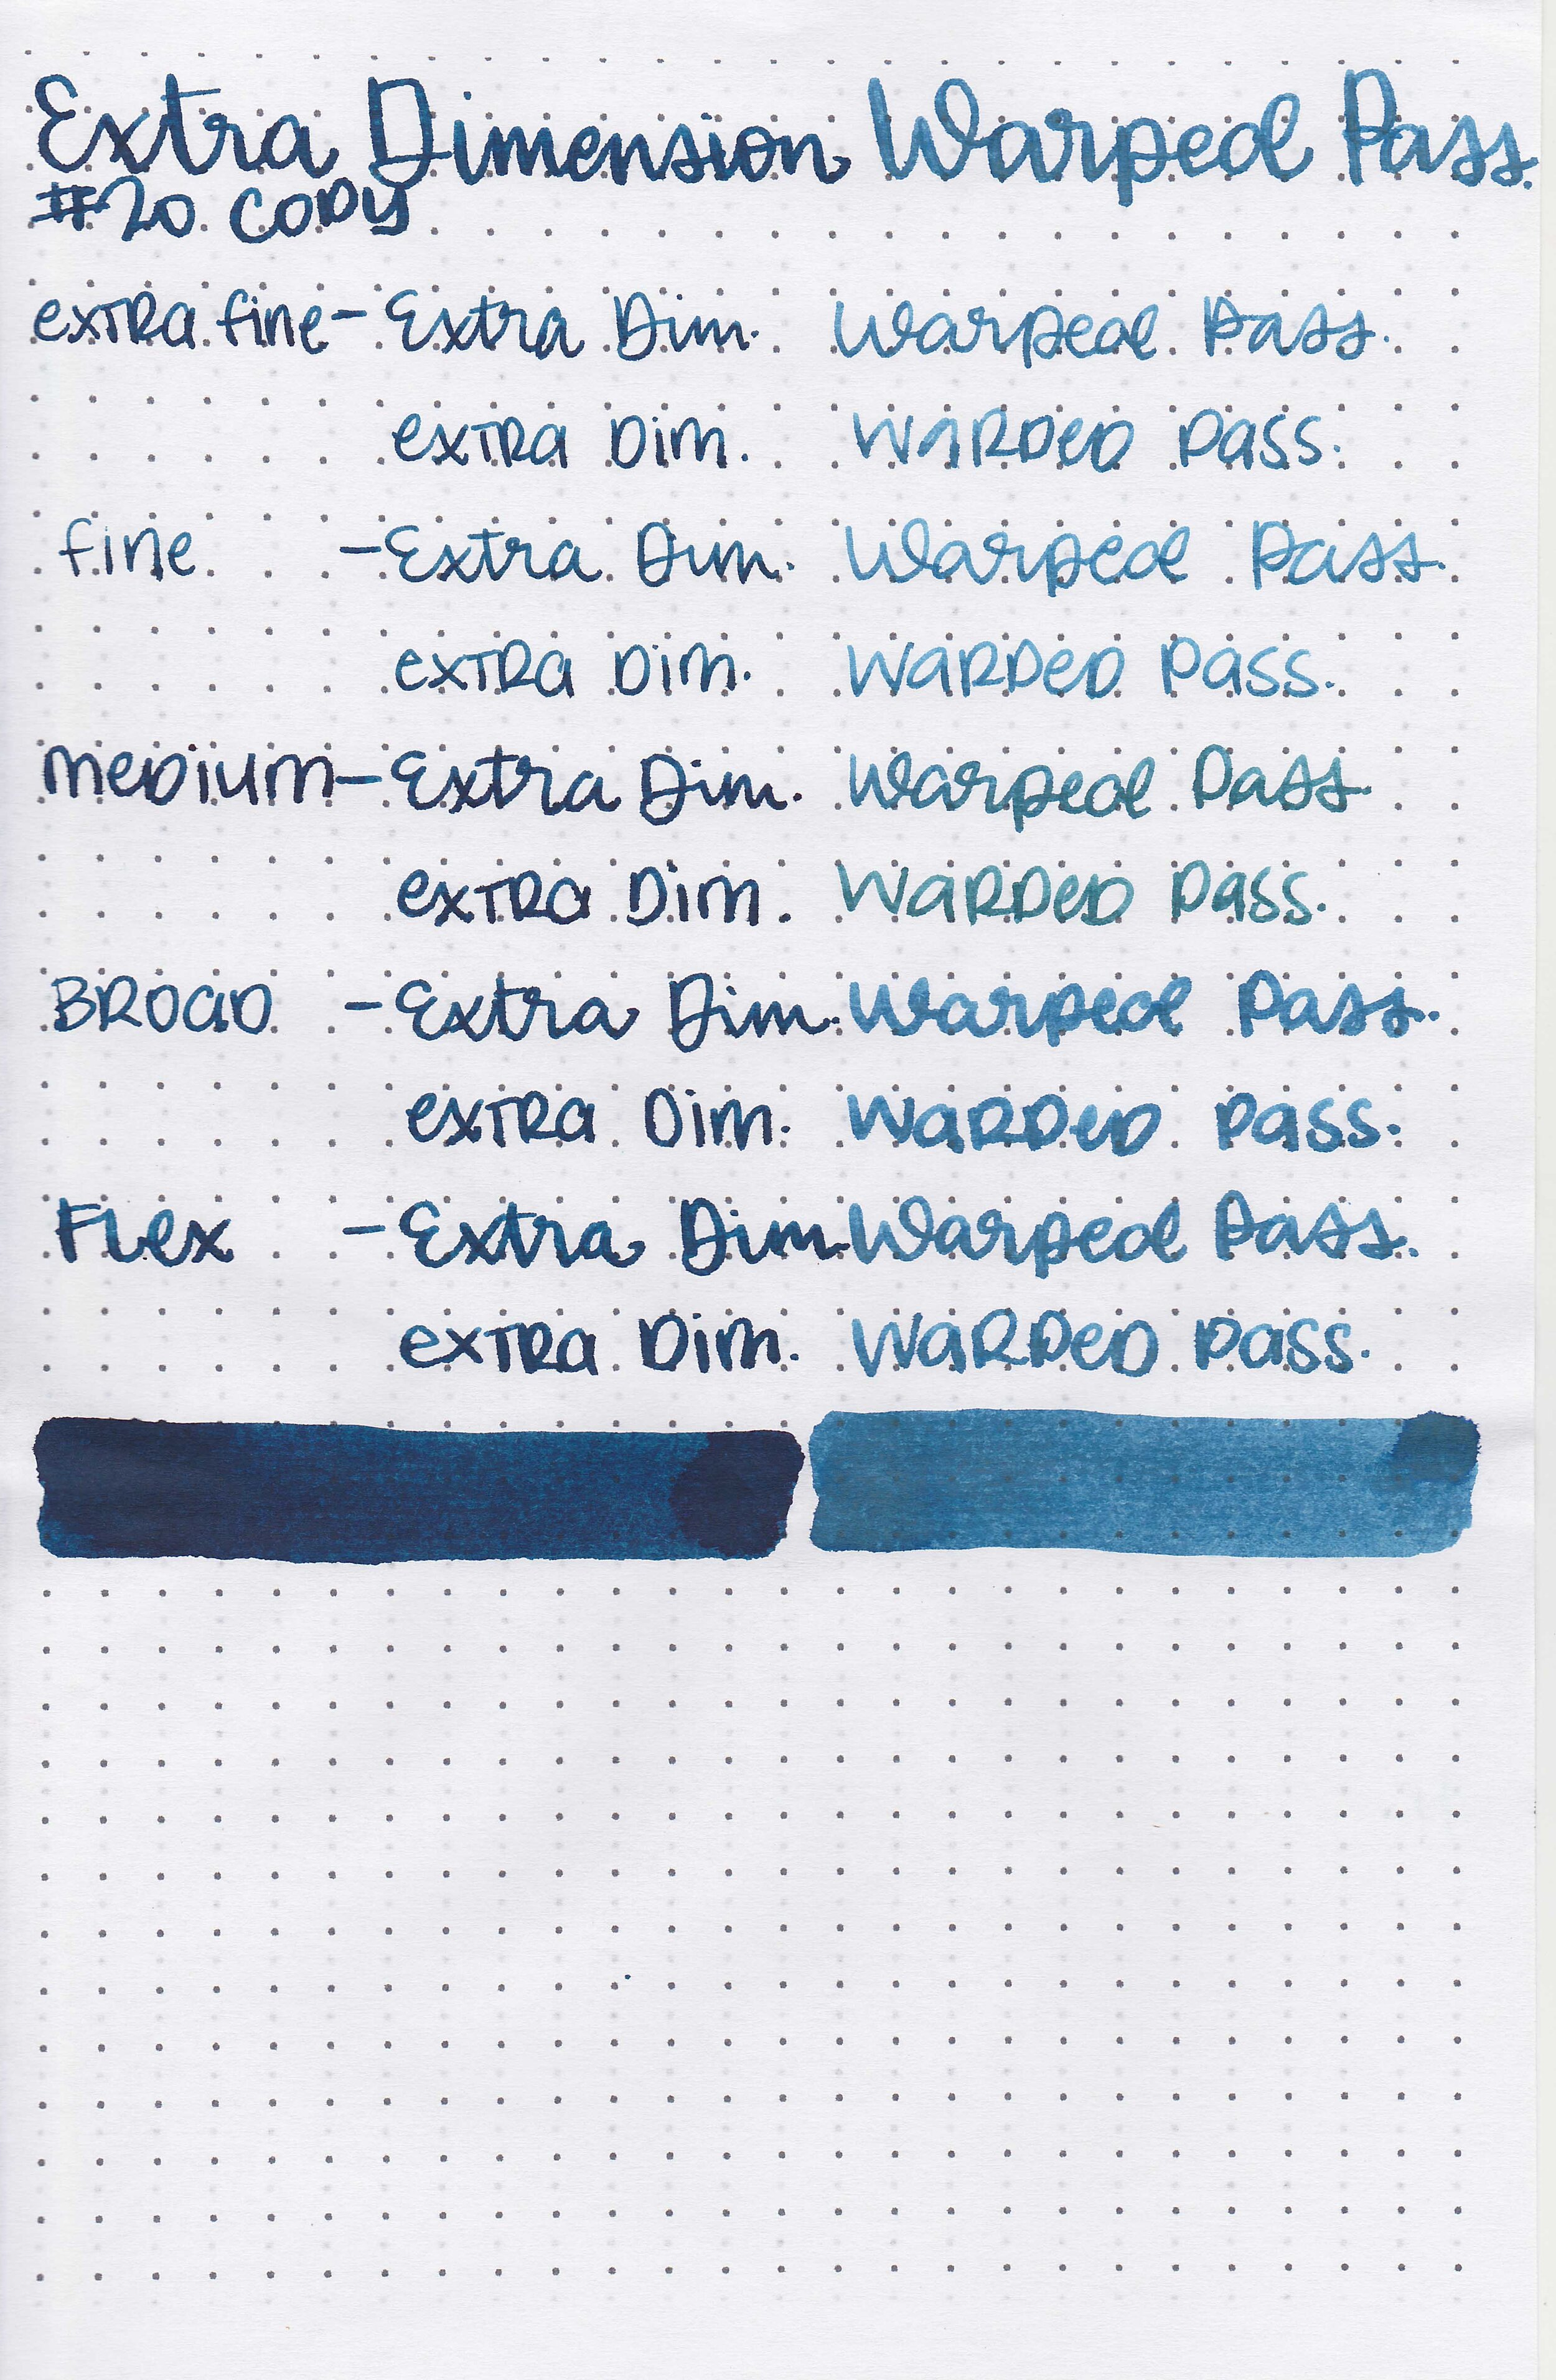 Extra Dimension Warped Pass.
#20 COPY
extra fine - Extra Dim. Warped Pass.
extra Dim. Warped Pass.
fine - Extra Dim. Warped Pass.
extra Dim. Warped Pass.
Medium - Extra Dim. Warped Pass.
extra Dim. Warped Pass.
Broad - Extra Dim. Warped Pass.
extra Dim. Warped Pass.
Flex - Extra Dim. Warped Pass.
extra Dim. Warped Pass.